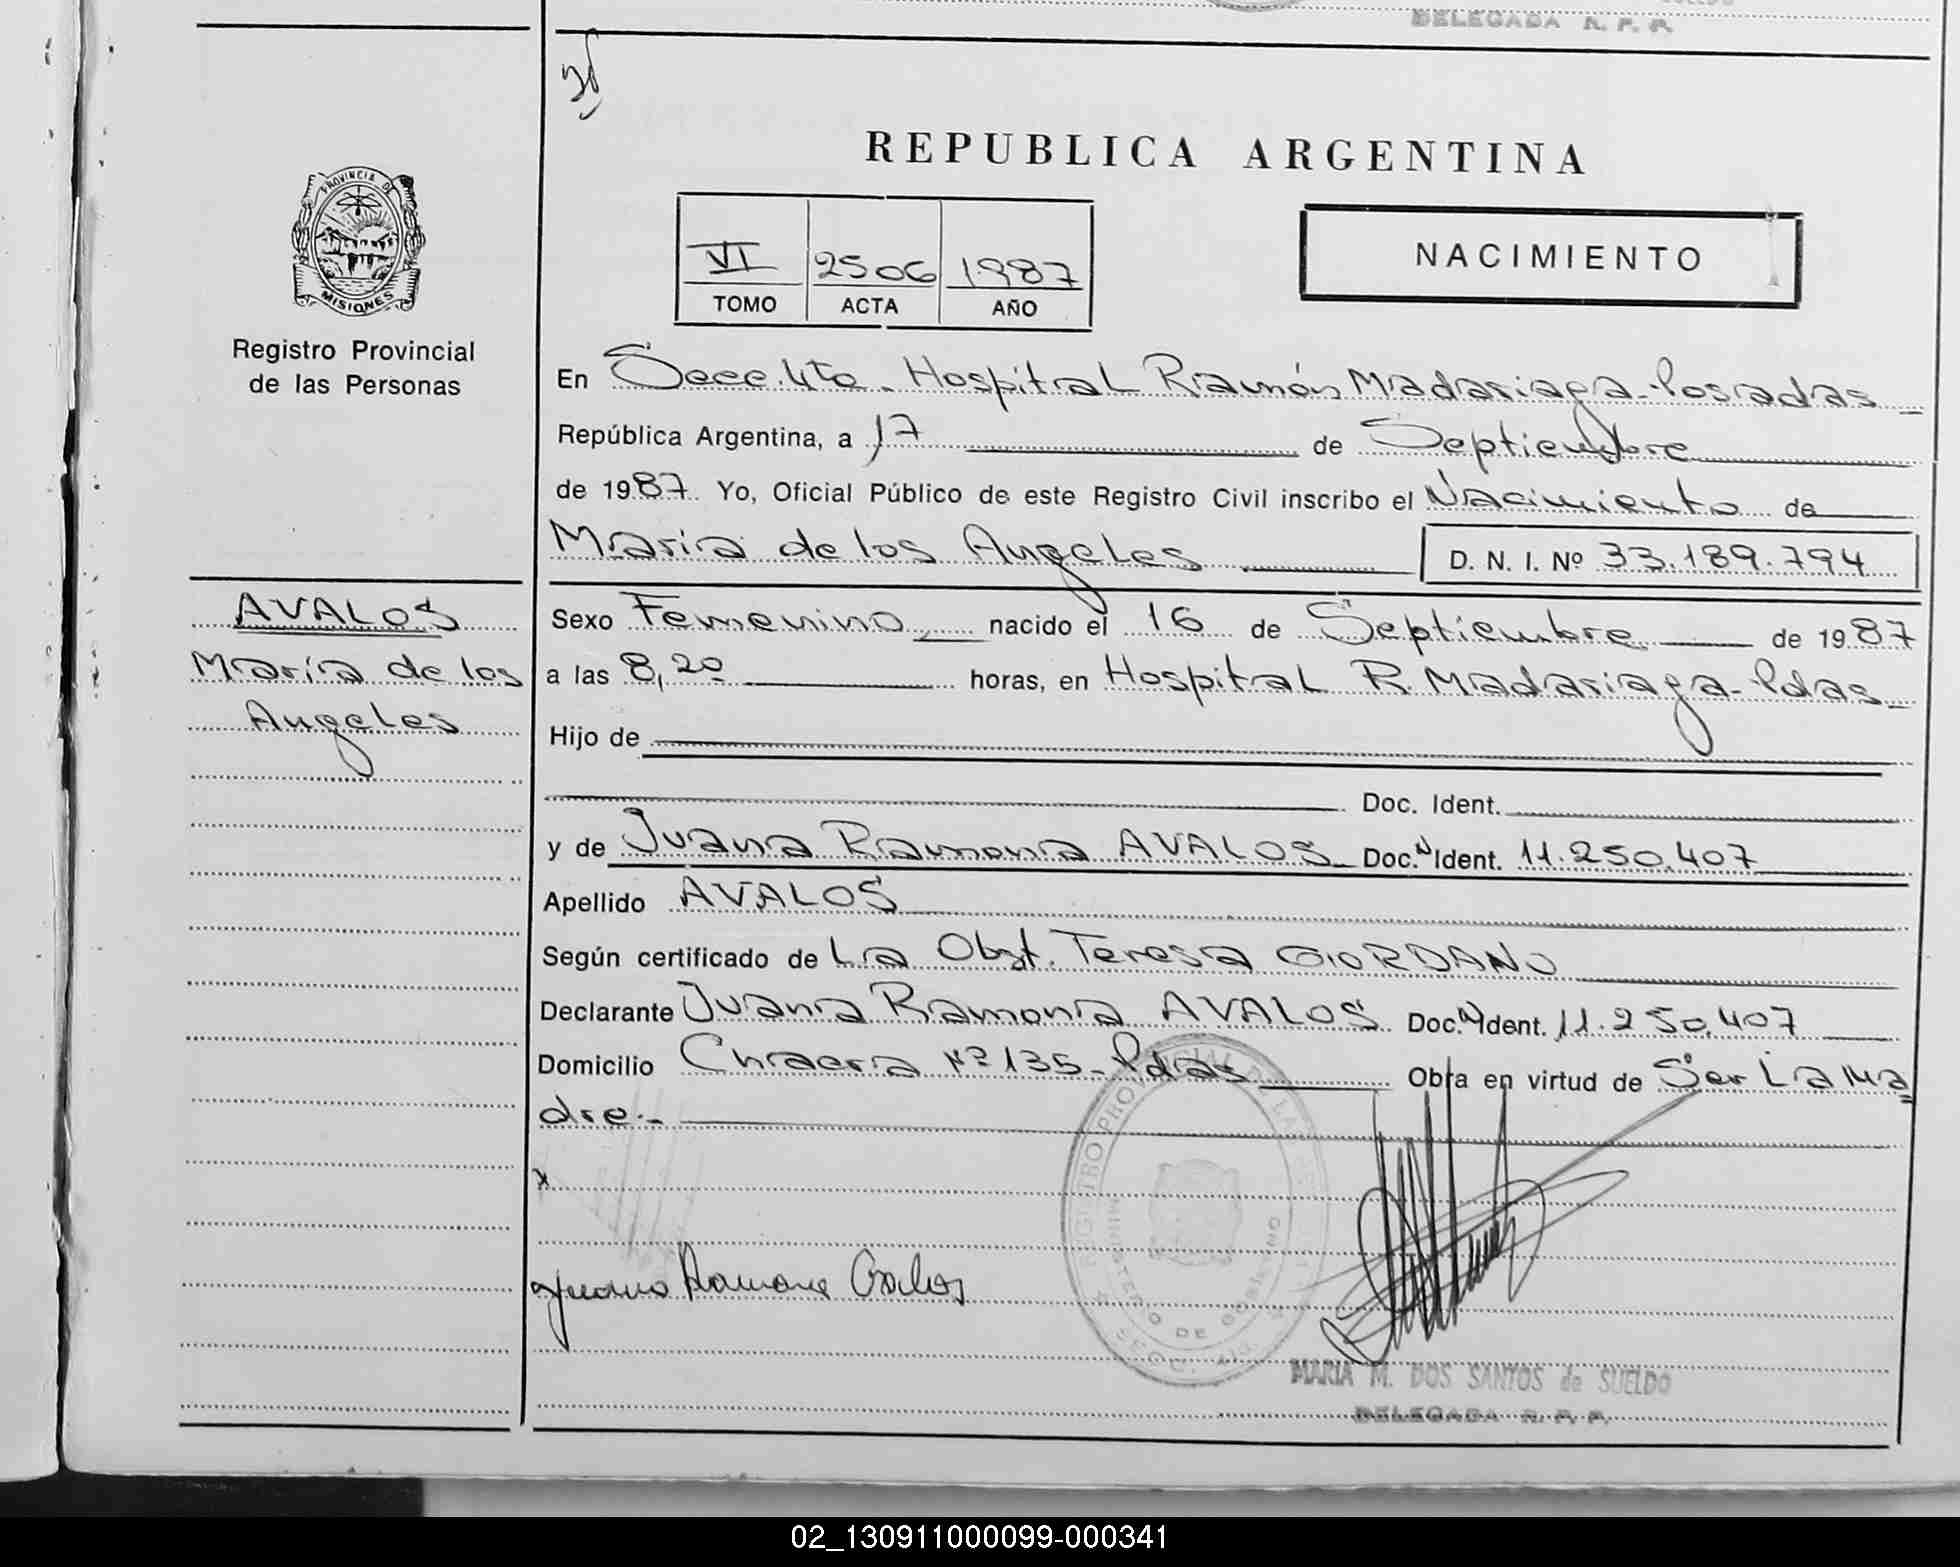 DELEGADA R. P. P.
REPUBLICA ARGENTINA
PROVINCIA DE
MISIONES
Registro Provincial
de las Personas
VI 2506 1987
TOMO ACTA AÑO
NACIMIENTO
En Secc. 4ta. Hospital Ramón Madariaga-Posadas
República Argentina, a 17 de Septiembre
de 1987. Yo, Oficial Público de este Registro Civil inscribo el Nacimiento de
Maria de los Angeles D. N. I. Nº 33.189.794
AVALOS
María de los
Angeles
Sexo Femenino nacido el 16 de Septiembre de 1987
a las 8,20 horas, en Hospital R. Madariaga-Pdas
Hijo de
Doc. Ident.
y de Juana Ramona AVALOS Doc. Ident. 11.250.407
Apellido AVALOS
Según certificado de La Obst. Teresa GIORDANO
Declarante Juana Ramona AVALOS Doc. Ident. 11.250.407
Domicilio Chacra Nº 135-Pdas Obra en virtud de Ser La Ma
dre.-
Juana Ramona Avalos
MARIA M. DOS SANTOS de SUELDO
DELEGADA R. P. P.
02_130911000099-000341